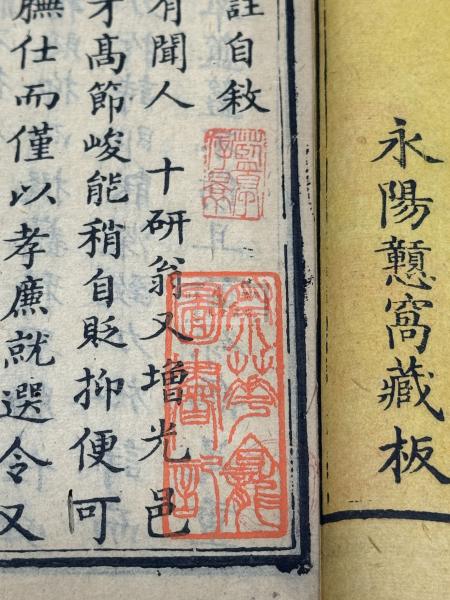 永陽戇窩藏板
註自敘
有聞人 十研翁又增光邑
才髙節峻能稍自貶抑便可
膴仕而僅以孝廉就選令又
圖書記